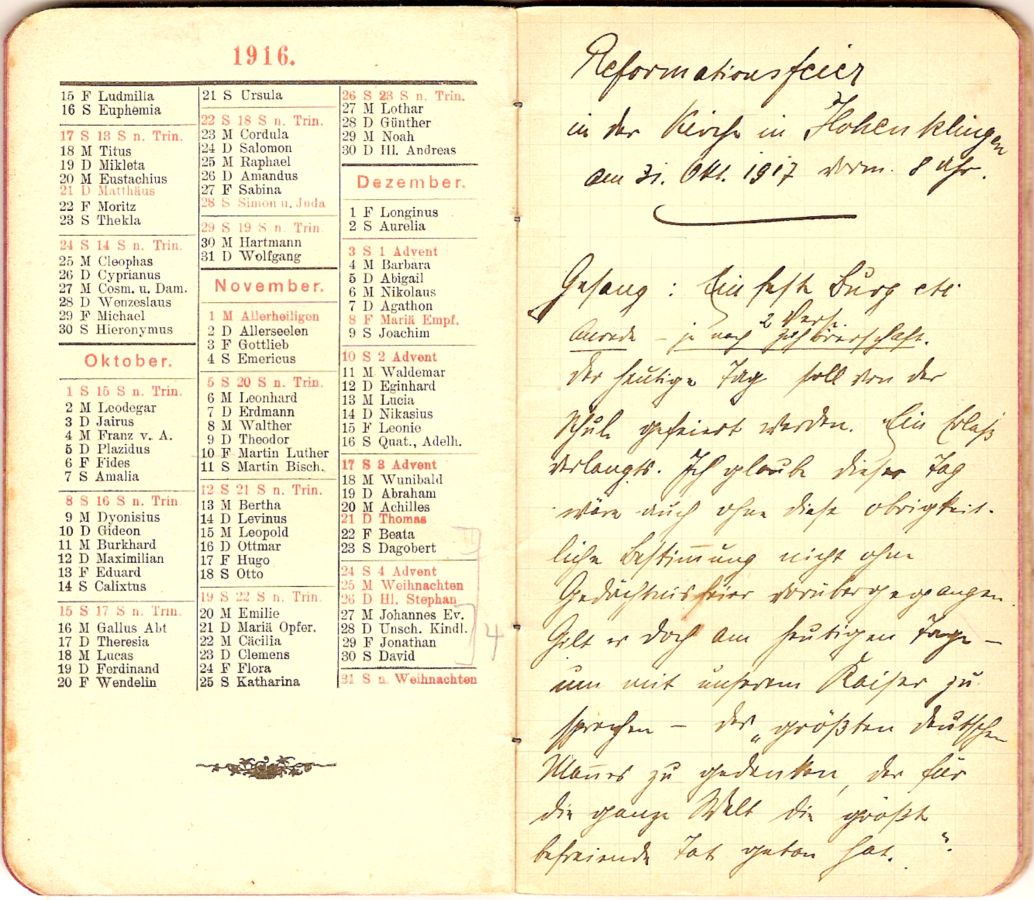 1916.
15 F Ludmilia
16 S Euphemia
17 S 13 S n. Trin.
18 M Titus
19 D Mikleta
20 M Eustachius
21 D Matthäus
22 F Moritz
23 S Thekla
24 S 14 S n. Trin.
25 M Cleophas
26 D Cyprianus
27 M Cosm. u. Dam.
28 D Wenzeslaus
29 F Michael
30 S Hieronymus
Oktober.
1 S 15 S n. Trin.
2 M Leodegar
3 D Jairus
4 M Franz v. A.
5 D Plazidus
6 F Fides
7 S Amalia
8 S 16 S n. Trin.
9 M Dyonisius
10 D Gideon
11 M Burkhard
12 D Maximilian
13 F Eduard
14 S Calixtus
15 S 17 S n. Trin.
16 M Gallus Abt
17 D Theresia
18 M Lucas
19 D Ferdinand
20 F Wendelin
21 S Ursula
22 S 18 S n. Trin.
23 M Cordula
24 D Salomon
25 M Raphael
26 D Amandus
27 F Sabina
28 S Simon u. Juda
29 S 19 S n. Trin.
30 M Hartmann
31 D Wolfgang
November.
1 M Allerheiligen
2 D Allerseelen
3 F Gottlieb
4 S Emericus
5 S 20 S n. Trin.
6 M Leonhard
7 D Erdmann
8 M Walther
9 D Theodor
10 F Martin Luther
11 S Martin Bisch.
12 S 21 S n. Trin.
13 M Bertha
14 D Levinus
15 M Leopold
16 D Ottmar
17 F Hugo
18 S Otto
19 S 22 S n. Trin.
20 M Emilie
21 D Mariä Opfer.
22 M Cäcilia
23 D Clemens
24 F Flora
25 S Katharina
26 S 23 S n. Trin.
27 M Lothar
28 D Günther
29 M Noah
30 D Hl. Andreas
Dezember.
1 F Longinus
2 S Aurelia
3 S 1 Advent
4 M Barbara
5 D Abigail
6 M Nikolaus
7 D Agathon
8 F Mariä Empf.
9 S Joachim
10 S 2 Advent
11 M Waldemar
12 D Eginhard
13 M Lucia
14 D Nikasius
15 F Leonie
16 S Quat., Adelh.
17 S 3 Advent
18 M Wunibald
19 D Abraham
20 M Achilles
21 D Thomas
22 F Beata
23 S Dagobert
24 S 4 Advent
25 M Weihnachten
26 D Hl. Stephan
27 M Johannes Ev.
28 D Unsch. Kindl.
29 F Jonathan
30 S David
31 S n. Weihnachten
4
Reformationsfeier
in der Kirche in Hohenklingen
am 31. Okt. 1917 vorm. 8 Uhr.
Gesang : Ein feste Burg etc
2 Verse.
Anrede – je nach Zuhörerschaft.
Der heutige Tag soll von der
Schule gefeiert werden. Ein Erlaß
verlangts. Ich glaube dieser Tag
wäre auch ohne diese obrigkeit-
liche Bestimmung nicht ohne
Gedächtnisfeier vorübergegangen.
Gilt es doch am heutigen Tage –
um mit unserem Kaiser zu
sprechen – des „größten deutschen
Mannes zu gedenken, der für
die ganze Welt die größte
befreiende Tat getan hat."